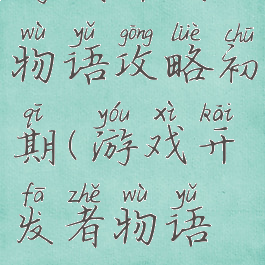 wù yǔ gōng lüè chū
物语攻略初
qī yóu xì kāi
期(游戏开
fā zhě wù yǔ
发者物语